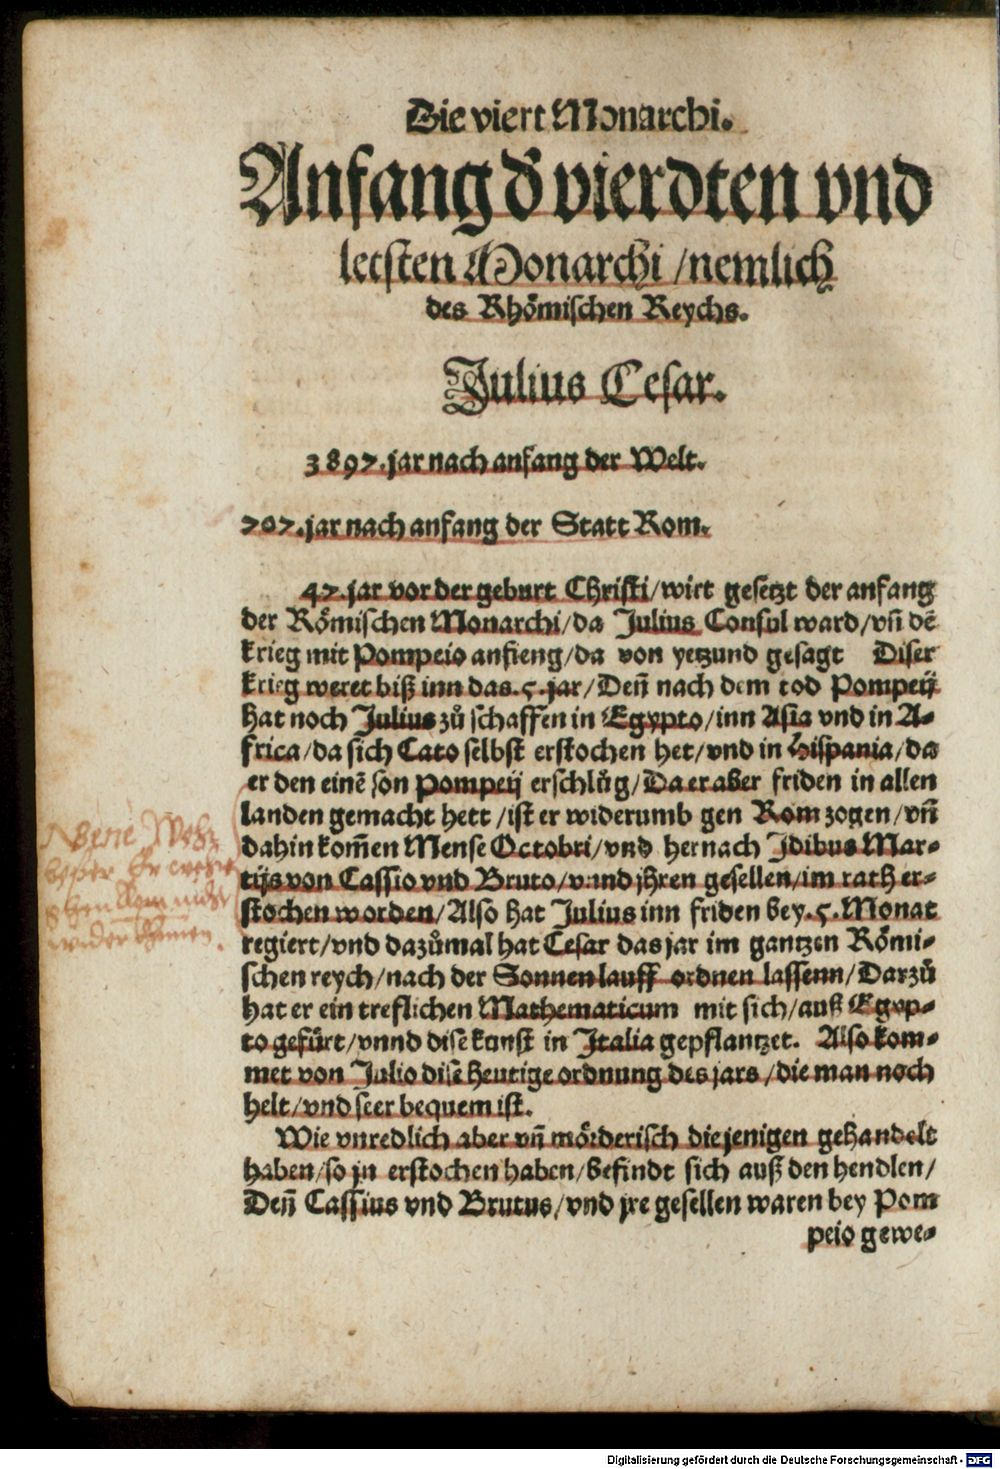 Die viert Monarchi.
Anfang d̕ vierdten vnd
letsten Monarchi /nemlich
des Rhömischen Reychs.
Julius Cesar.
3897.jar nach anfang der Welt.
707.jar nach anfang der Statt Rom.
47.jar vor der geburt Christi/wirt gesetzt der anfang
der Römischen Monarchi/da Julius Consul ward/vñ dē
krieg mit Pompeio anfieng/da von yetzund gesagt Diser
krieg weret biß inn das.5.jar/Deñ nach dem tod Pompeij
hat noch Julius zů schaffen in Egypto/inn Asia vnd in A-
frica/da sich Cato selbst erstochen het/vnd in Hispania/da
er den einē son Pompeij erschlůg/Da er aber friden in allen
landen gemacht hett /ist er widerumb gen Rom zogen/vñ
dahin kom̃en Mense Octobri/vnd hernach Idibus Mar-
tijs von Cassio vnd Bruto/vnnd jhren gesellen/im rath er-
stochen worden/Also hat Julius inn friden bey.5.Monat
regiert/vnd dazůmal hat Cesar das jar im gantzen Römi-
schen reych/nach der Sonnen lauff ordnen lassenn/Darzů
hat er ein treflichen Mathematicum mit sich/auß Egyp-
to gefürt/vnnd dise kunst in Italia gepflantzet. Also kom-
met von Julio dise heutige ordnung des jars /die man noch
helt/vnd seer bequem ist.
Wie vnredlich aber vñ mörderisch die jenigen gehandelt
haben/so jn erstochen haben/befindt sich auß den hendlen/
Deñ Cassius vnd Brutus/vnd jre gesellen waren bey Pom
peio gewe-
Digitalisierung gefördert durch die Deutsche Forschungsgemeinschaft - DFG